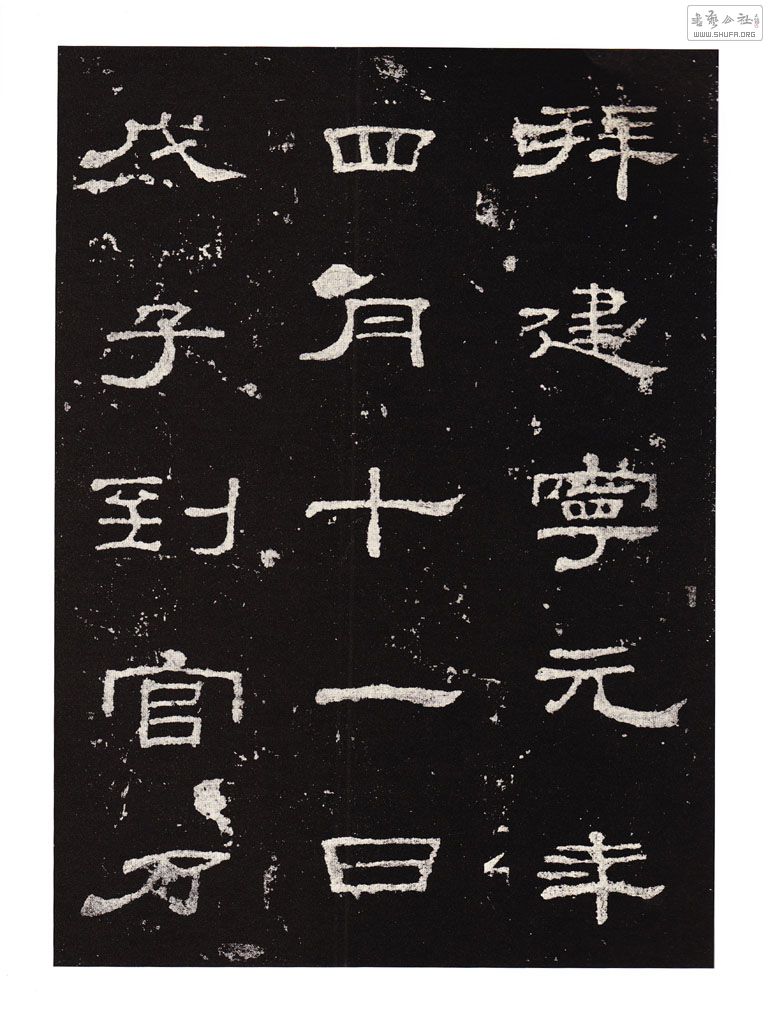 書藝公社
WWW.SHUFA.ORG
拜建寧元年
四月十一日
戊子到官乃